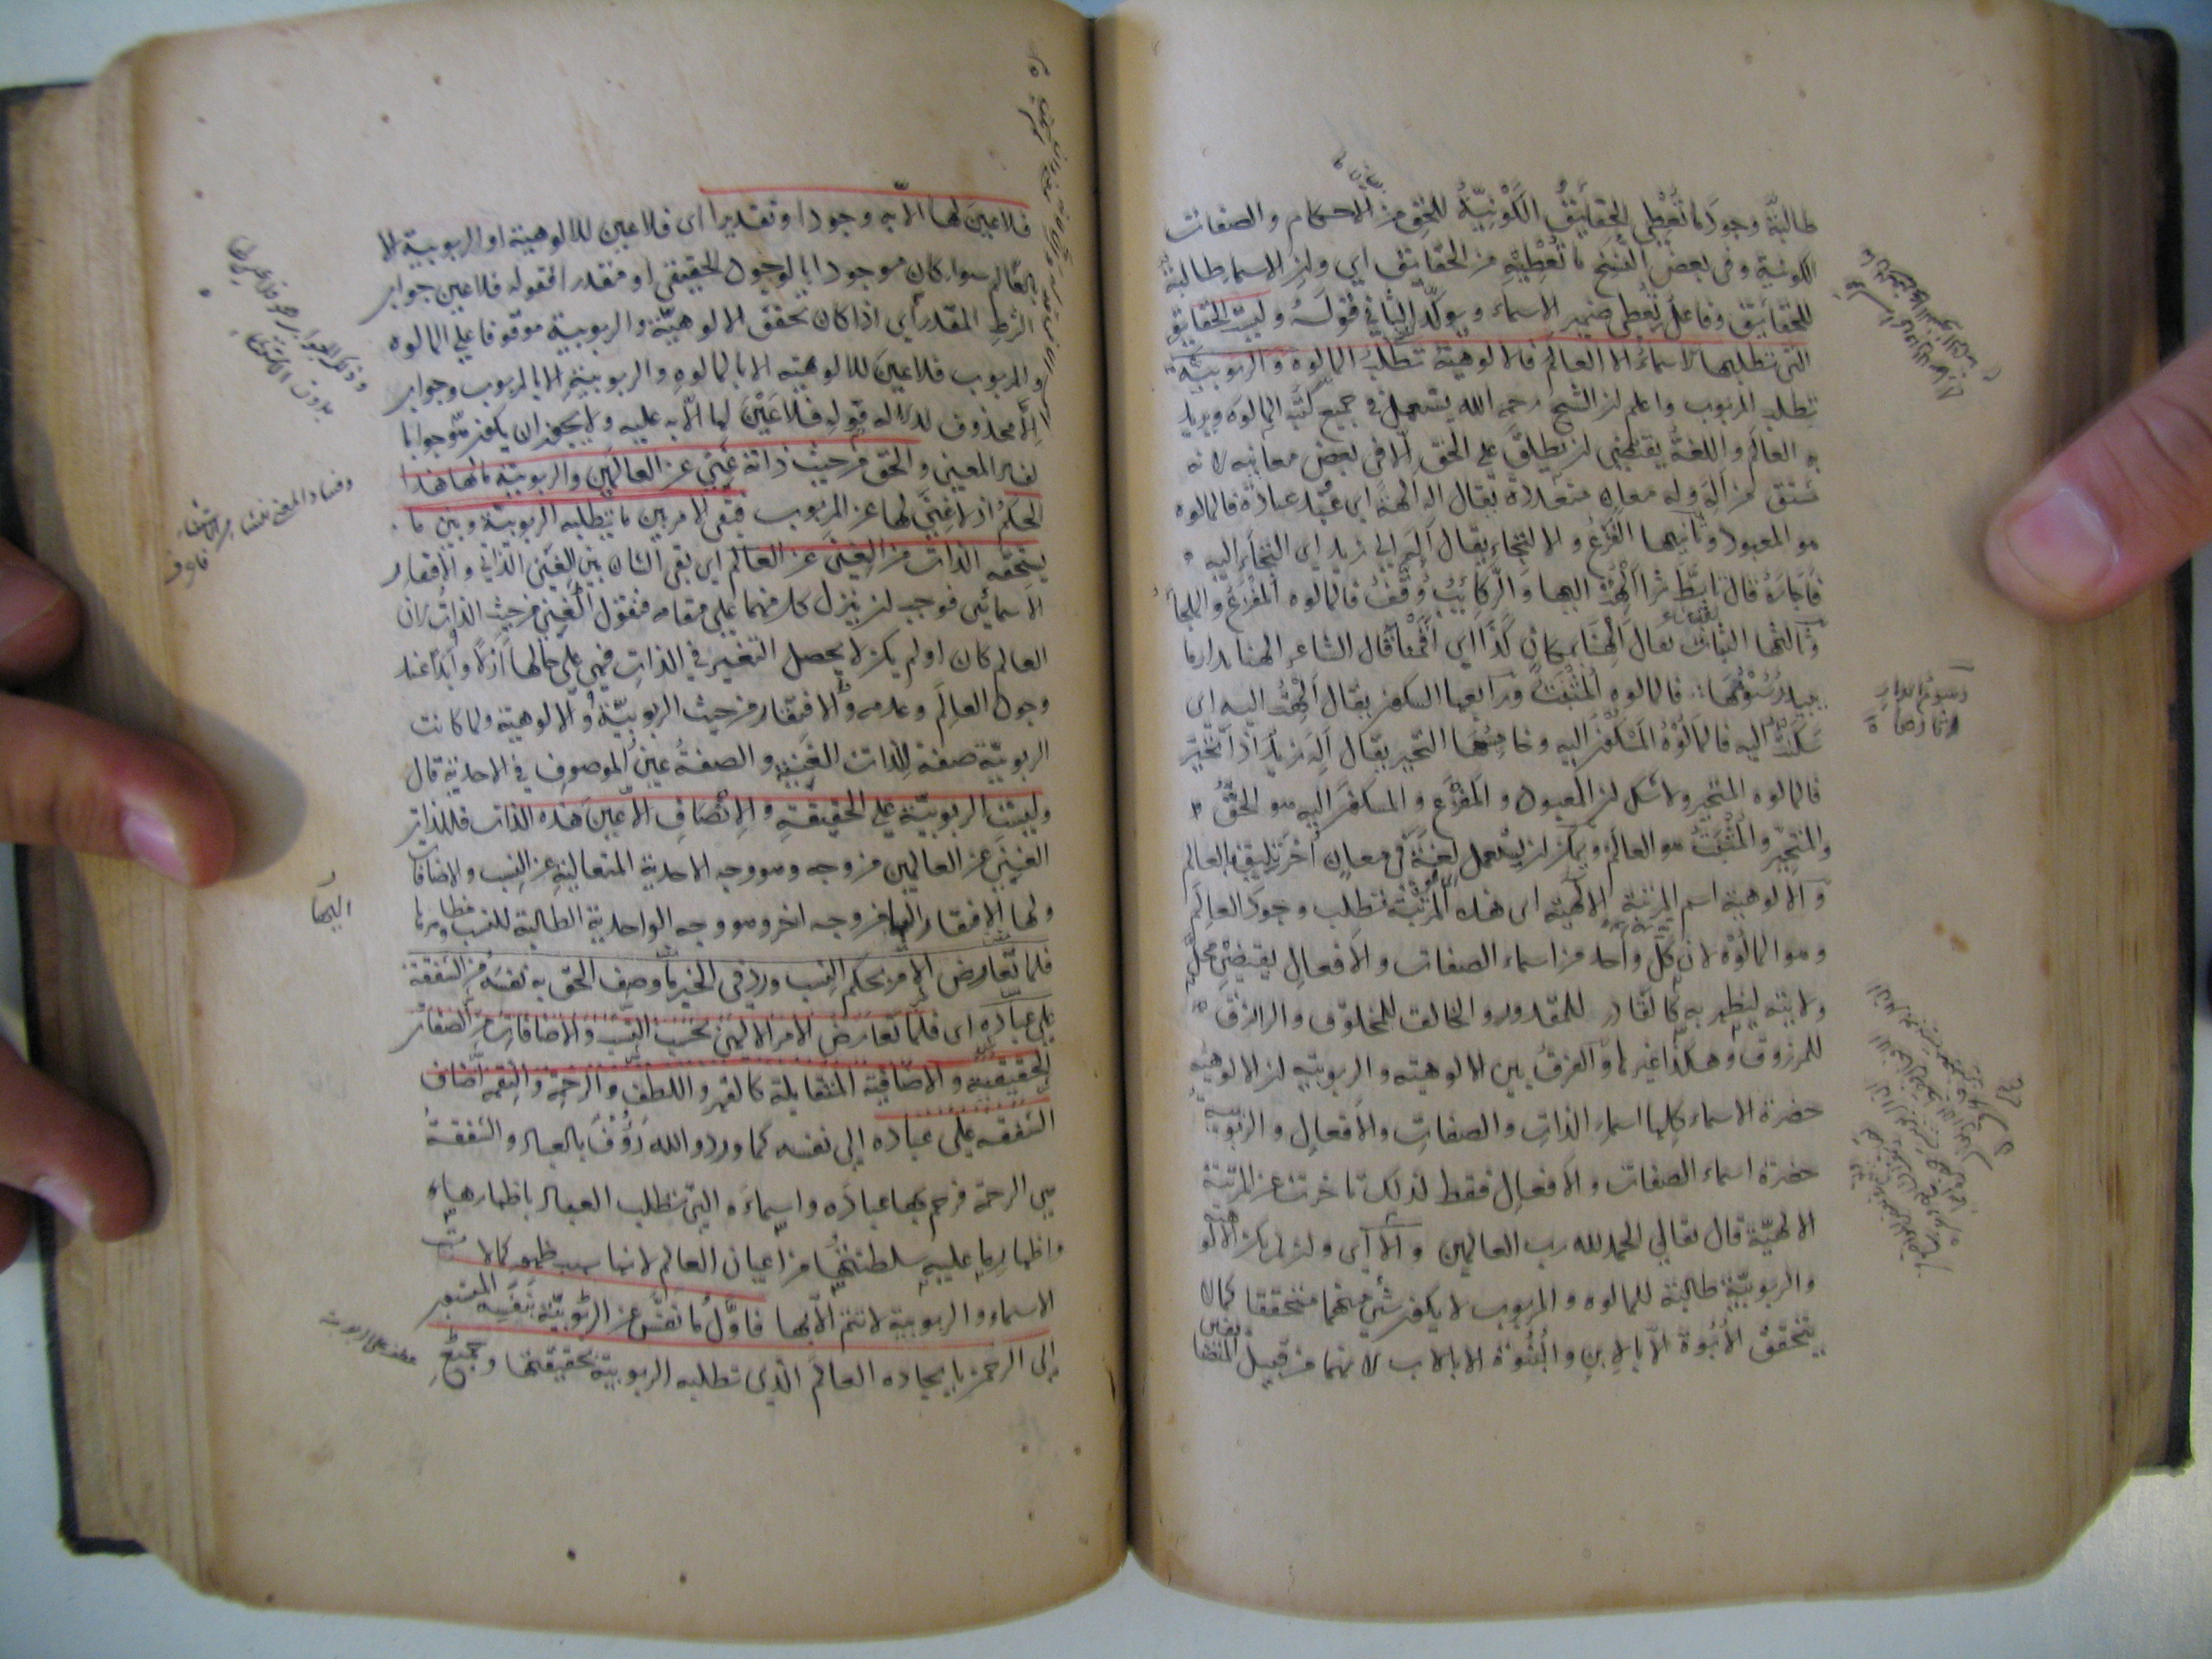 طالبة وجود ما تعطي الحقايق الكونية للحق من الاحكام والصفات
الكونية وفى بعض النسخ ما تعطيه من الحقايق اي وان الاسماء طالبة
للحقايق وفاعل تعطي ضمير الاسماء ويؤكد الثاني قوله وليست الحقايق
التى تطلبها الاسماء الا العالم فالالوهية تطلب المالوه والربوبية
تطلب المربوب واعلم ان الشيخ رحمه الله يستعمل في جميع كتبه المالوه ويريد
به العالم واللغة يقتضي ان يطلق على الحق الا فى بعض معانيه لانه
مشتق من اله وله معان متعددة يقال اله الهة اي عبد عبادة فالمالوه
هو المعبود وثانيها الفزع والالتجاء يقال اله الى زيد اي التجاء اليه
فاجاره قال الهت اليها والركائب وقف فالمالوه المفزع والملجأ
وثالثها الثبات يقال الهنا بمكان كذا اي اقمنا قال الشاعر الهنا بدار ما
تبيد رسومها فالمالوه المثبت ورابعها السكون يقال الهت اليه اى
سكنت اليه فالمالوه المسكون اليه وخامسها التحير يقال اله زيد اذا تحير
فالمالوه المتحير ولا شك ان المعبود والمفزع والمسكون اليه هو الحق
والمتحير والمثبت هو العالم ويمكن ان يستعمل لغة فى معان اخر تليق بالعالم
والالوهية اسم المرتبة الالهية اى هذه المرتبة تطلب وجود العالم
وهو المالوه لان كل واحد من اسماء الصفات والافعال يقتضي محل
ولايته ليظهر به كالقادر للمقدور والخالق للمخلوق والرازق
للمرزوق وهكذا غيرها والفرق بين الالوهية والربوبية ان الالوهية
حضرة الاسماء كلها اسماء الذات والصفات والافعال والربوبية
حضرة اسماء الصفات والافعال فقط لذلك تاخرت عن المرتبة
الالهية قال تعالى الحمد لله رب العالمين والا اى وان لم يكن الالوهية
والربوبية طالبة للمالوه والمربوب لا يكون شئ منهما متحققا كما لا
يتحقق الابوة الا بالابن والبنوة الا بالاب لانهما من قبيل المتضايفين
رسوم الدار
اثارها
فلا عين لها الا به وجودا وتقديرا اى فلا عين للالوهية او الربوبية الا
بالعالم سواء كان موجودا بالوجود الحقيقي او مقدرا فقوله فلا عين جواب
الشرط المقدر اي اذا كان تحقق الالوهية والربوبية موقوفا على المالوه
والمربوب فلا عين للالوهية الا بالمالوه والربوبية الا بالمربوب وجواب
الا محذوف لدلالة قوله فلا عين لها الا به عليه ولا يجوز ان يكون هو جوابا
لفساد المعنى والحق من حيث ذاته غني عن العالمين والربوبية ما لها هذا
الحكم اذ لا غنى لها عن المربوب فبقى الامر بين ما تطلبه الربوبية وبين ما
يستحقه الذات من الغنى عن العالم اى بقى الشان بين الغنى الذاتي والافتقار
الاسمائي فوجب ان ينزل كل منهما على مقامه فنقول الغنى من حيث الذات لان
العالم كان او لم يكن لا يحصل التغير في الذات فهى على حالها ازلا وابدا عند
وجود العالم وعدمه والافتقار من حيث الربوبية والالوهية ولما كانت
الربوبية صفة للذات الغنية والصفة عين الموصوف في الاحدية قال
وليست الربوبية على الحقيقة والاتصاف الا عين هذه الذات فللذات
الغنى عن العالمين من وجه وهو وجه الاحدية المتعالية عن النسب والاضافات
ولها الافتقار اليها من وجه اخر وهو وجه الواحدية الطالبة للنسب ومظاهرها
فلما تعارض الامر بحكم النسب ورد فى الخبر ما وصف الحق به نفسه من الشفقة
على عباده اى فلما تعارض الامر الالهى بحسب النسب والاضافات من الصفات
الحقيقية والاضافية المتقابلة كالقهر واللطف والرحمة والنقمة اضاف
الشفقة على عباده الى نفسه كما ورد والله رؤف بالعباد والشفقة
هى الرحمة فرحم بها عباده واسماءه التى تطلب العباد باظهارهم
واظهار ما عليه سلطنتها من اعيان العالم لانها سبب ظهور كمالات
الاسماء والربوبية لا تتم الا بها فاول ما نفس عن الربوبية بنفسه المنسوب
الى الرحمن بايجاده العالم الذى تطلبه الربوبية بحقيقتها وجميع
اليها
عطف على الربوبية